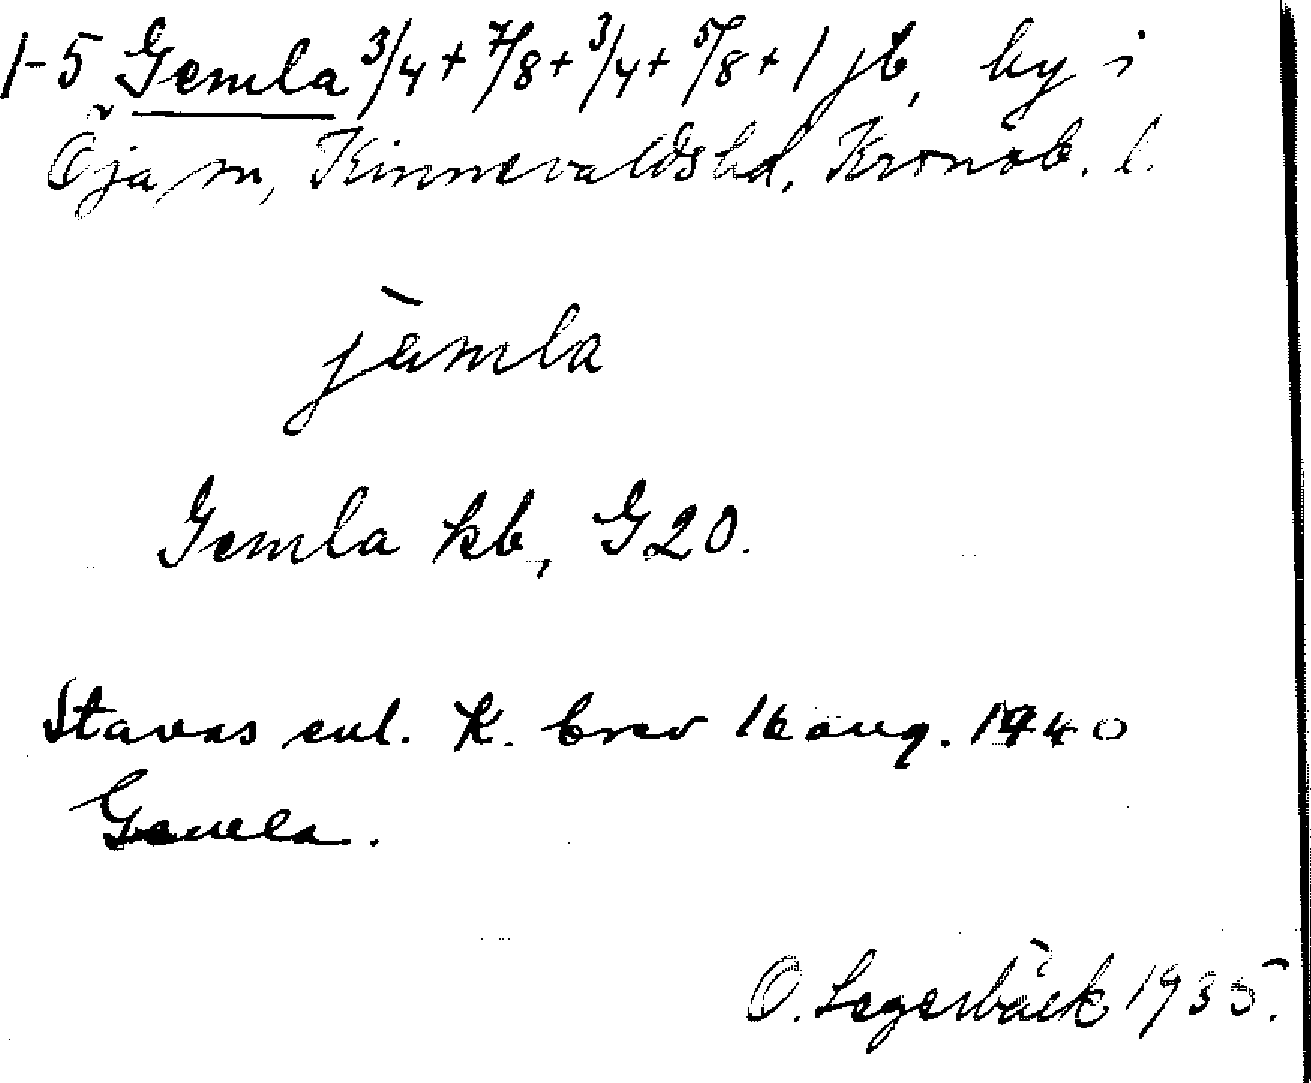 1-5 Gemla 3/4 + 7/8 + 3/4 + 5/8 + 1 jb, by i
Öja sn, Kinnevalds hd, Kronob. l.
jämla
Gemla kb, G20.
Stavas enl. K. brev 16 aug. 1940
Gemla.
O. Lagerbäck 1935.